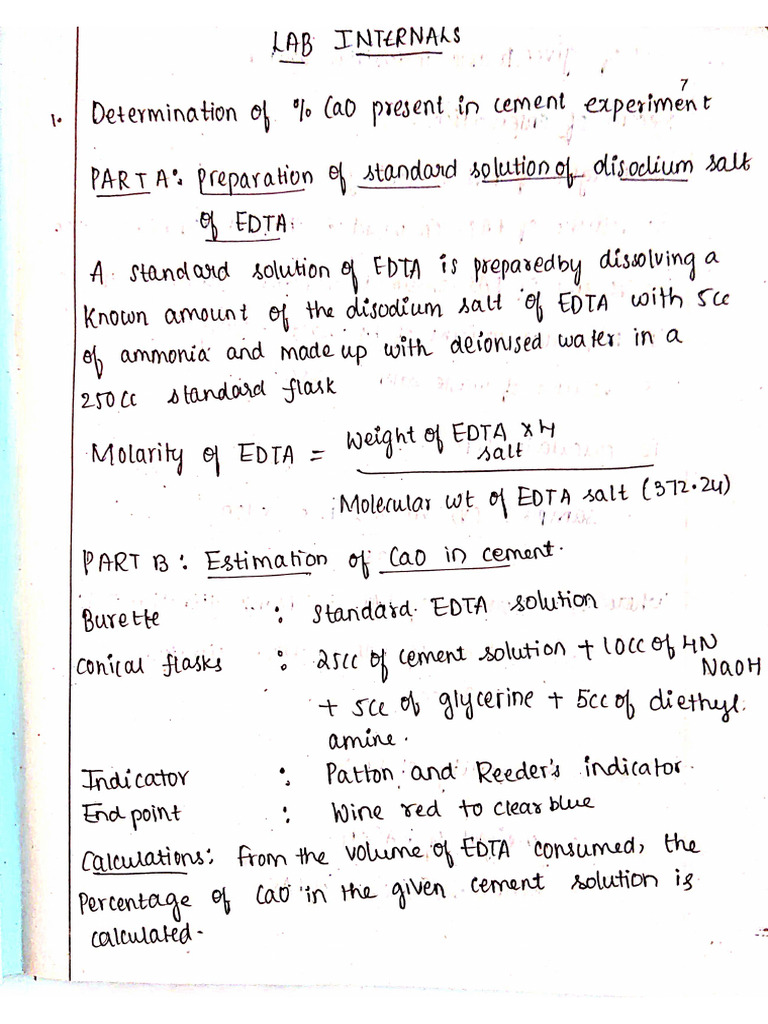 LAB INTERNALS
7
1. Determination of % CaO present in cement experiment
PART A: Preparation of standard solution of disodium salt
of EDTA:
A standard solution of EDTA is prepared by dissolving a
known amount of the disodium salt of EDTA with 5cc
of ammonia and made up with deionised water in a
250cc standard flask
Molarity of EDTA = Weight of EDTA salt × 4
Molecular wt of EDTA salt (372.24)
PART B: Estimation of CaO in cement.
Burette : Standard EDTA solution
Conical flasks : 25cc of cement solution + 10cc of 4N NaOH
+ 5cc of glycerine + 5cc of diethyl
amine.
Indicator : Patton and Reeder's indicator.
End point : Wine red to clear blue
Calculations: From the volume of EDTA consumed, the
percentage of CaO in the given cement solution is
calculated.